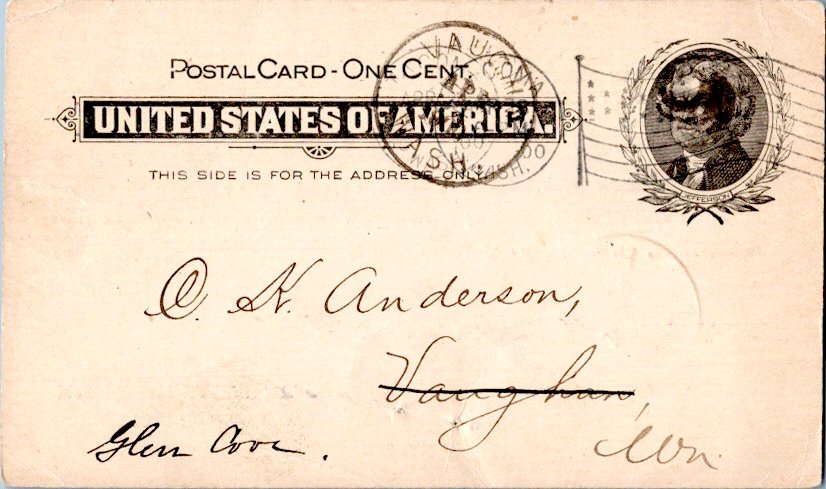 POSTAL CARD - ONE CENT.
UNITED STATES OF AMERICA.
THIS SIDE IS FOR THE ADDRESS ONLY.
WASH.
APR
00
WASH.
JEFFERSON
C. K. Anderson,
Vaughan,
Glen Cove.
Wn.